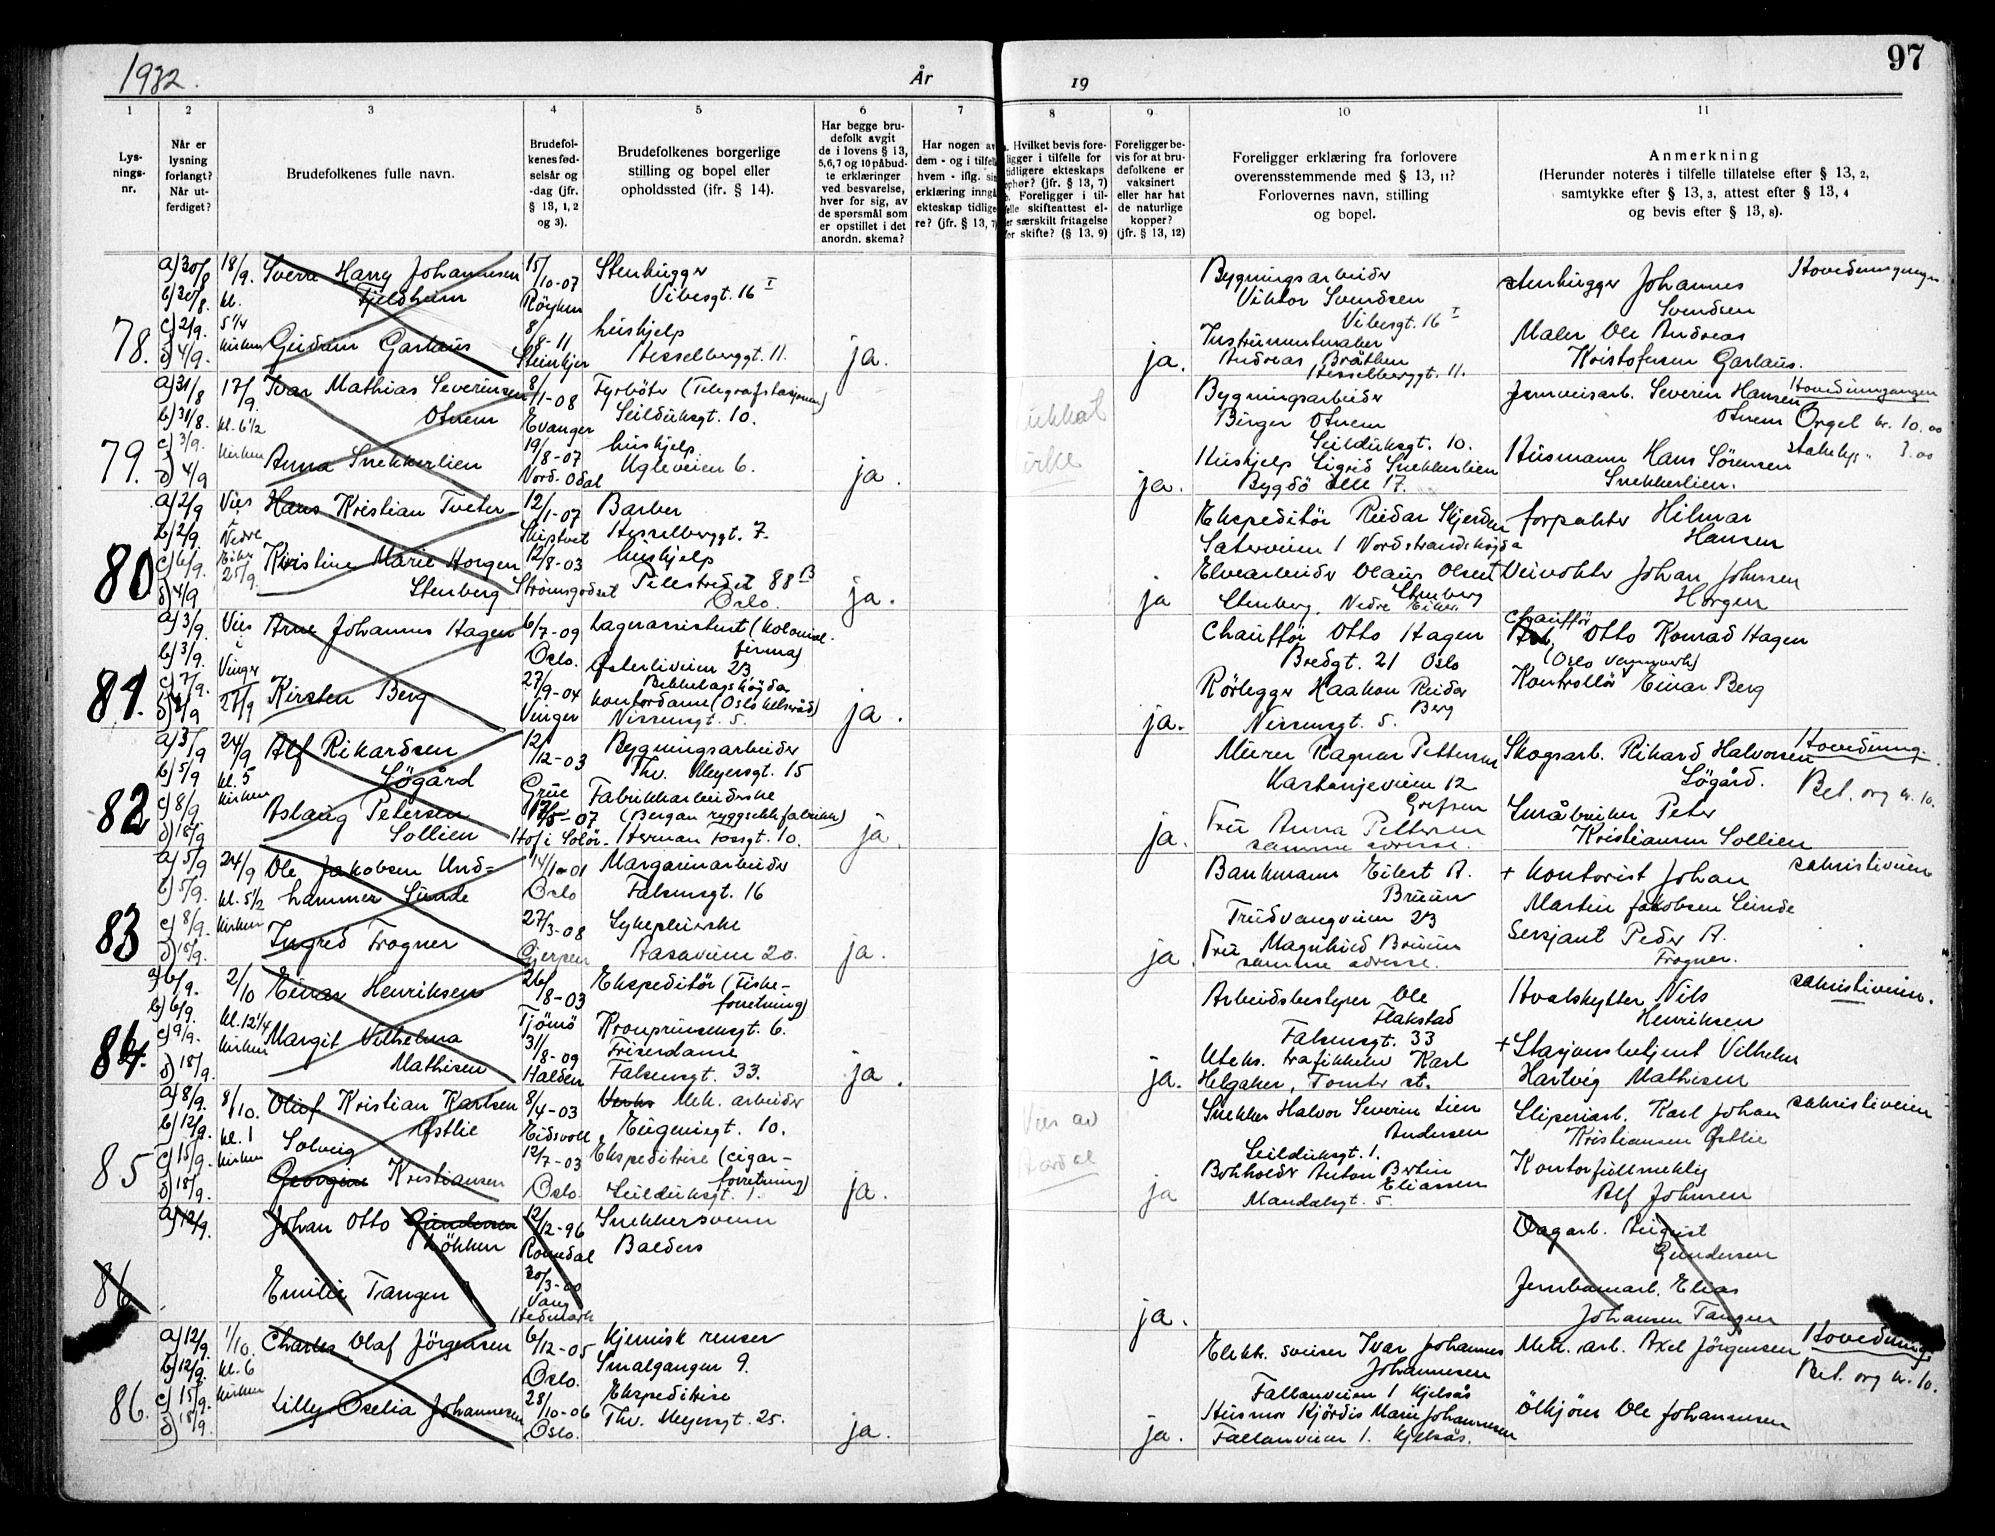 1932.
År
19
97
1
2
3
4
5
6
7
8
9
10
11
Lys-
nings-
nr.
Når er
lysning
forlangt?
Når ut-
ferdiget?
Brudefolkenes fulle navn.
Brudefol-
kenes fød-
selsår og
-dag (jfr.
§ 13, 1, 2
og 3).
Brudefolkenes borgerlige
stilling og bopel eller
opholdssted (jfr. § 14).
Har begge bru-
defolk avgit
de i lovens § 13,
5,6,7 og 10 påbud-
te erklæringer
ved besvarelse,
hver for sig, av
de spørsmål som
er opstillet i det
anordn. skema?
Har nogen av
dem - og i tilfelle
hvem - iflg. sin
erklæring inngå
ekteskap tidlige
re? (jfr. § 13, 7)
Hvilket bevis fore-
ligger i tilfelle for
tidligere ekteskaps
ophør? (jfr. § 13, 7)
Foreligger i til-
felle skifteattest el-
ler særskilt fritagelse
for skifte? (§ 13, 9)
Foreligger be-
vis for at bru-
defolkene er
vaksinert
eller har hat
de naturlige
kopper?
(jfr. § 13, 12)
Foreligger erklæring fra forlovere
overensstemmende med § 13, 11?
Forlovernes navn, stilling
og bopel.
Anmerkning
(Herunder noteres i tilfelle tillatelse efter § 13, 2,
samtykke efter § 13, 3, attest efter § 13, 4
og bevis efter § 13, 8).
78.
a) 30/8
b) 30/8.
c) 2/9.
d) 4/9.
18/9.
kl.
5 1/4
kirken
Sverre Harry Johannesen
Fjeldheim
Gudrun Garhaus
15/10-07
Röyken
8/8-11
Steinkjer
Stenhugger
Vibesgt. 16 I
hushjelp
Hesselberggt. 11.
ja.
ja.
Bygningsarbeider
Viktor Svendsen
Vibesgt. 16 I
Instrumentmaker
Andreas Bråthen
Hesselberggt. 11.
stenhugger Johannes
Svendsen
Maler Ole Andreas
Kristofersen Garhaus.
Hovedinngangen
79.
a) 31/8
b) 31/8.
c) 3/9.
d) 4/9
17/9.
kl. 6 1/2
kirken
Ivar Mathias Severinsen
Otnem
Anna Snekkerlien
8/1-08
Evanger
19/8-07
Nord-Odal
Fyrböter (Telegrafstasjonen)
Seilduksgt. 10.
hushjelp
Ugleveien 6.
ja.
ja.
Bygningsarbeider
Birger Otnem
Seilduksgt. 10.
Hushjelp Sigrid Snekkerlien
Bygdö alle 17.
Jernveisarb. Severin Hansen
Otnem
Husmann Hans Sørensen
Snekkerlien.
Hovedinngangen
Orgel kr. 10.00
3.00
80
a) 2/9
b) 2/9.
c) 6/9.
d) 4/9
Vies
i
Nedre
Eiker
25/9.
Hans Kristian Tveter
Kristine Marie Horgen
Stenberg
12/1-07
Skiptvet
12/8-03
Strömsgodset
Barber
Hesselberggt. 7.
hushjelp
Pilestredet 88 B
Oslo.
ja.
ja
Ekspeditör Reidar Skjerden
Säterveien 1 Nordstrandshögda
Elvearbeider Olaus Olsen
Stenberg
Stenberg, Nedre Eiker.
forpakter Hilmar
Hansen
Veivokter Johan Johnsen
Horgen
81.
a) 3/9.
b) 3/9.
c) 7/9.
Vies
i
Vinger
Arne Johannes Hagen
Kirsten Berg
6/7-09
Oslo.
27/9-04
Vinger
Lagerassistent (kolonial-
firma)
Österliveien 23
Bekkelagshögda
kontordame (Oslo helseråd)
Nissensgt. 5.
ja.
ja.
Chaufför Otto Hagen
Bredgt. 21 Oslo
Rörlegger Haakon Reidar
Berg
Nissensgt. 5.
Chaufför
Otto Konrad Hagen
Kontrollör Einar Berg
82
a) 3/9
b) 5/9
c) 8/9
d) 18/9
24/9
kl. 5
kirken
Alf Rikardsen
Sögård
Aslaug Petersen
Sollien
12/12-03
Grue
Hof i Solör
Bygningsarbeider
Thv. Meyersgt. 15
Fabrikkarbeiderske
(Bergan ryggsekkfabrikk)
Herman Fossgt. 10.
ja.
ja.
Murer Ragnar Pettersen
Kastanjeveien 12
Grefsen
Fru Anna Pettersen
samme adresse.
Skogsarb. Rikard Halvorsen
Sögård.
Småbruker Peter
Kristiansen Sollien
Hovedinng.
Bet. org kr. 10.
83
a) 5/9
b) 5/9.
c) 8/9.
d) 18/9.
24/9
kl. 5 1/2
kirken
Ole Jakobsen Und-
hammer Sunde
Ingrid Frogner
14/1-01
Oslo
27/3-08
Gjerpen
Margarinarbeider
Falsensgt. 16
Sykepleierske
Aasaveien 20.
ja.
ja.
Bankmann Eilert A.
Bruun
Trudvangveien 23
Fru Magnhild Bruun
samme adresse.
+ Kontorist Johan
Martin Jakobsen Sunde
Sersjant Peder A.
Frogner.
sakristiveien
84.
a) 6/9.
b) 6/9.
c) 9/9.
d) 18/9.
2/10
kl. 12 1/4
kirken
Einar Henriksen
Margit Vilhelma
Mathisen
26/8-03
Tjömö
31/8-09
Halden
Ekspeditör (Fiske-
forretning)
Kronprinsensgt. 6.
Friserdame
Falsensgt. 33.
ja.
ja.
Arbeidsbestyrer Ole
Flakstad
Falsensgt. 33
Uteks. trafikkelev Karl
Helgaker, Tomter st.
Hvalskytter Nils
Henriksen
+ Stasjonsbetjent Vilhelm
Hartvig Mathisen
sakristiveien.
85
a) 8/9.
b) 12/9.
c) 15/9.
d) 18/9.
8/10.
kl. 1
kirken
Oluf Kristian Karlsen
Østlie
Solveig
Georgine Kristiansen
8/4-03
Eidsvoll
12/7-03
Oslo.
Mek. arbeider
Eugeniesgt. 10.
Ekspeditrise (cigar-
forretning)
Seilduksgt. 1.
ja.
Vies av
ja
Snekker Halvor Severin Lien
Andersen
Seilduksgt. 1.
Bokholder Anton Bertin
Eliassen
Mandalsgt. 5.
Sliperiarb. Karl Johan
Kristiansen Østlie
Kontorfullmektig
Alf Johnsen
sakristiveien
86
a) 12/9.
Johan Otto Gundersen
Lökken
Emilie Tangen
12/12-96
Romedal
30/3-00
Vang
Hedmark
Snekkersvenn
Balders
ja.
Dagarb. August
Gundersen
Jernbanearb. Elias
Johansen Tangen
86.
a) 12/9.
b) 12/9.
c) 15/9.
d) 18/9.
1/10.
kl. 6
kirken
Charles Olaf Jörgensen
Lilly Oselia Johannesen
6/12-05
Oslo.
28/10-06
Oslo.
Kjemisk renser
Smalgangen 9.
Ekspeditrise
Thv. Meyersgt. 25.
ja.
ja.
Elektr. sveiser Ivar Johannes
Johannesen
Fallanveien 1 Kjelsås
Husmor Kjördis Marie Johannesen
Fallanveien 1. Kjelsås.
Mek. arb. Axel Jörgensen
Ölkjörer Ole Johannesen
Hovedinng.
Bet. org kr. 10.